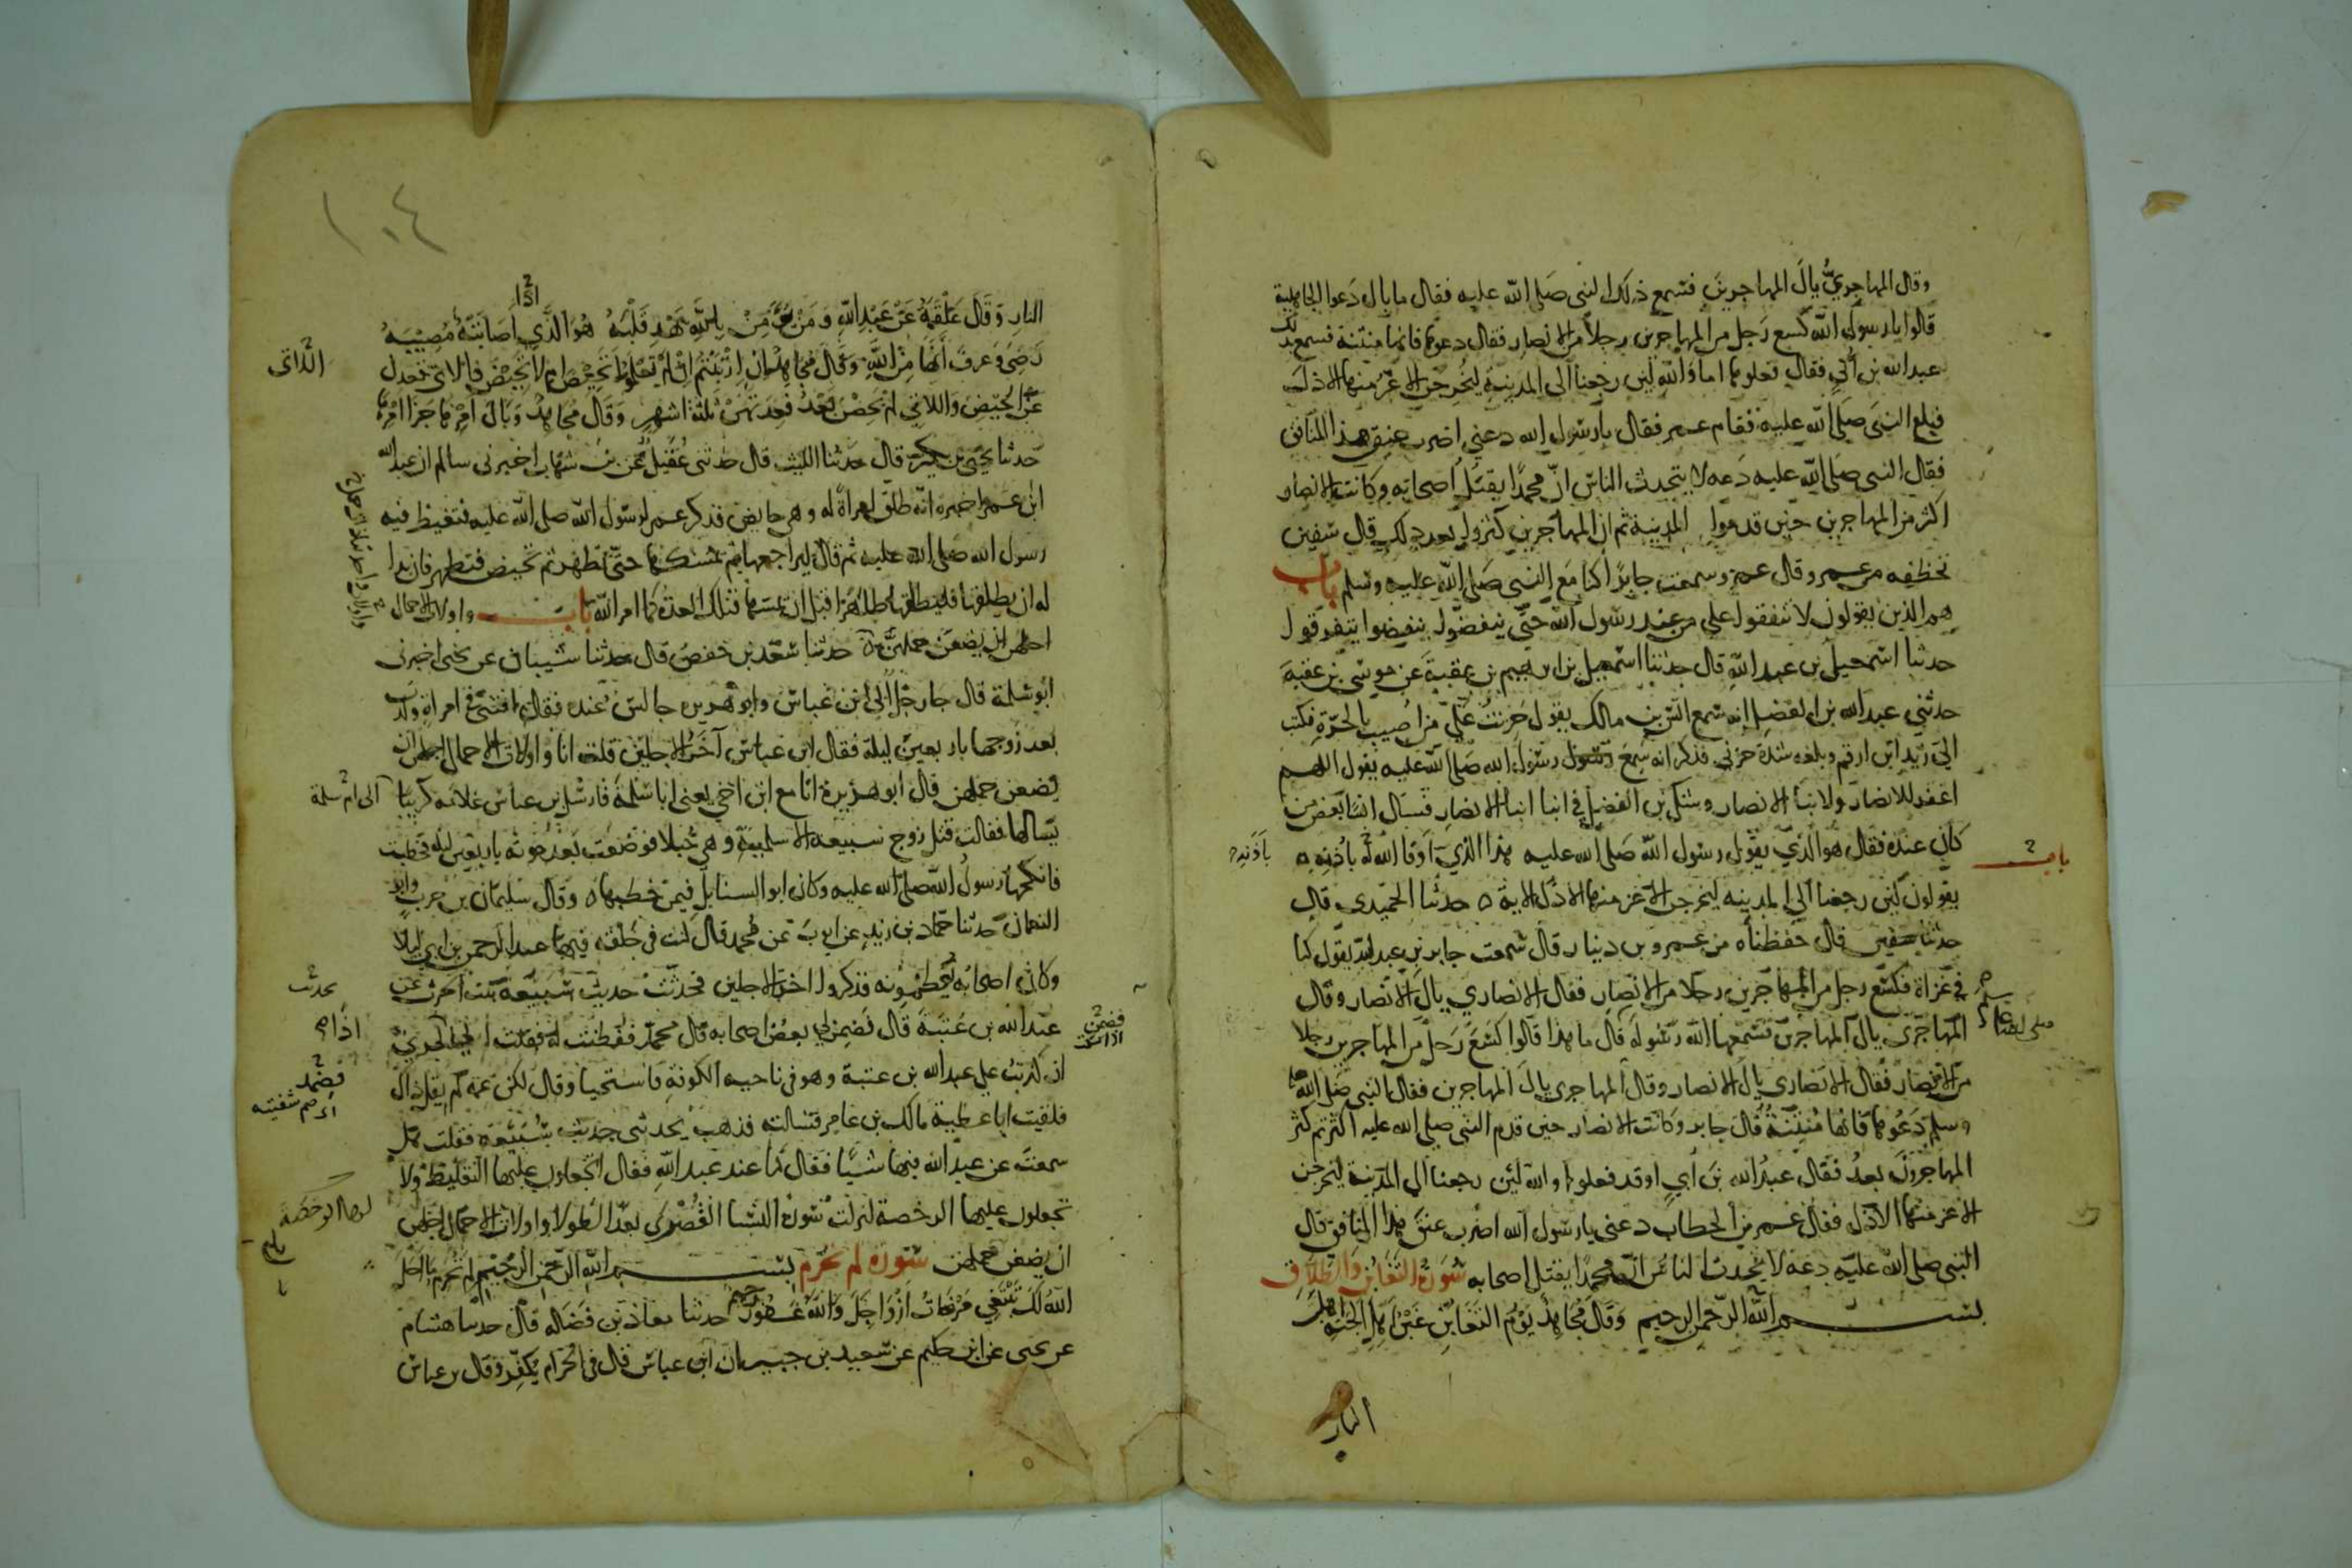 وقال المهاجريُّ يالَ المهاجرين فسمع ذلك النبي صلى الله عليه فقال ما بال دعوا الجاهلية
قالوا يا رسول الله كسع رجل من المهاجرين رجلاً من الانصار فقال دعوها فانها منتنة فسمع بذلك
عبد الله بن أُبي فقال فعلوها اما والله لئن رجعنا الى المدينة ليخرجن الاعز منها الاذل
فبلغ النبي صلى الله عليه فقام عمر فقال يا رسول الله دعني اضرب عنق هذا المنافق
فقال النبي صلى الله عليه دعه لا يتحدث الناس ان محمدًا يقتل اصحابه وكانت الانصار
اكثر من المهاجرين حين قدموا المدينة ثم ان المهاجرين كثروا بعد ذلك قال سفين
تحفظه من عمرو قال عمرو سمعت جابرًا كنا مع النبي صلى الله عليه وسلم باب
هم الذين يقولون لا تنفقوا على من عند رسول الله حتى ينفضوا ينفضوا يتفرقوا
حدثنا اسمعيل بن عبد الله قال حدثنا اسمعيل بن ابرهيم بن عقبة عن موسى بن عقبة
حدثني عبد الله بن الفضل انه سمع انس بن مالك يقول حزنت على من اصيب بالحرة فكتب
الي زيد ابن ارقم وبلغه شدة حزني فذكر انه سمع رسول الله صلى الله عليه يقول اللهم
اغفر للانصار ولابنا الانصار وشك بن الفضل في ابنا ابنا الانصار فسال انسًا بعض من
كان عنده فقال هو الذي يقول رسول الله صلى الله عليه هذا الذي اوفا الله له باذنه
باب
يقولون لئن رجعنا الي المدينه ليخرجن الاعز منها الاذل الاية حدثنا الحميدي قال
حدثنا سفين قال حفظناه من عمرو بن دينار قال سمعت جابر بن عبد الله يقول كنا
في غزاة فكسع رجل من المهاجرين رجلا من الانصار فقال الانصاري يال الانصار وقال
المهاجري يال المهاجرين فسمعها الله رسوله قال ما هذا قالوا كسع رجل من المهاجرين رجلا
من الانصار فقال الانصاري يال الانصار وقال المهاجري يال المهاجرين فقال النبي صلى الله عليه
وسلم دعوها فانها منتنة قال جابر وكانت الانصار حين قدم النبي صلى الله عليه اكثر ثم كثر
المهاجرون بعد فقال عبد الله بن أبي اوقد فعلوها والله لئن رجعنا الى المدينة ليخرجن
الاعز منها الاذل فقال عمر بن الخطاب دعني يا رسول الله اضرب عنق هذا المنافق قال
النبي صلى الله عليه دعه لا يتحدث الناس ان محمدًا يقتل اصحابه سورة التغابن والطلاق
بسم الله الرحمن الرحيم وقال مجاهد يوم التغابن غبن اهل الجنة اهل
النار
١٠٤
النار وقال علقمة عن عبد الله ومن يؤمن بالله يهد قلبه هو الذي اصابته مصيبة
رضي وعرف أنها من الله وقال مجاهد ان ارتبتم ان لم تعلموا تحيض ام لا تحيض فاللائي قعدن
عن الحيض واللاتي لم يحضن بعد فعدتهن ثلثة اشهر وقال مجاهد وبال امرها جزا امرها
حدثنا يحيى بن بكير قال حدثنا الليث قال حدثني عقيل عن بن شهاب اخبرني سالم ان عبد الله
ابن عمر اخبره انه طلق امراة له وهي حايض فذكر عمر لرسول الله صلى الله عليه فتغيظ فيه
رسول الله صلى الله عليه ثم قال ليراجعها ثم يمسكها حتى تطهر ثم تحيض فتطهر فان بدا
له ان يطلقها فليطلقها طاهرًا قبل ان يمسها فتلك العدة كما امر الله باب واولات الاحمال
اجلهن ان يضعن حملهن حدثنا سعد بن حفص قال حدثنا شيبان عن يحيى اخبرني
ابو سلمة قال جا رجل الى ابن عباس وابو هريره جالس عنده فقال افتني في امراة ولدت
بعد زوجها باربعين ليلة فقال ابن عباس آخر الاجلين قلت انا واولات الاحمال اجلهن ان
يضعن حملهن قال ابو هريرة انا مع ابن اخي يعني ابا سلمة فارسل بن عباس غلامه كريبًا الى ام سلمة
يسالها فقالت قتل زوج سبيعة الاسلمية وهي حبلا فوضعت بعد موته باربعين ليلة فخطبت
فانكحها رسول الله صلى الله عليه وكان ابو السنابل فيمن خطبها وقال سليمان بن حرب وابو
النعمان حدثنا حماد بن زيد عن ايوب عن محمد قال كنت في حلقة فيها عبد الرحمن بن ابي ليلا
وكان اصحابه يعظمونه فذكروا اخر الاجلين فحدثت حديث سبيعة بنت الحرث عن
عبد الله بن عتبة قال فضمن لي بعض اصحابه قال محمد ففطنت له فقلت اني اذا لجريٌ
ان كذبت علي عبد الله بن عتبة وهو في ناحية الكوفة فاستحيا وقال لكن عمه لم يقل ذاك
فلقيت ابا عطية مالك بن عامر فسالته فذهب يحدثني حديث سبيعة فقلت هل
سمعت عن عبد الله فيها شيًا فقال كنا عند عبد الله فقال اتجعلون عليها التغليظ ولا
تجعلون عليها الرخصة لنزلت سورة النسا القصرى بعد الطولا واولات الاحمال اجلهن
ان يضعن حملهن سورة لم تحرم بسم الله الرحمن الرحيم لم تحرم ما احل
الله لك تبتغي مرضات ازواجك والله غفور رحيم حدثنا معاذ بن فضاله قال حدثنا هشام
عن يحيى عن ابن حكيم عن سعيد بن جبير ان ابن عباس قال في الحرام يكفر وقال بن عباس